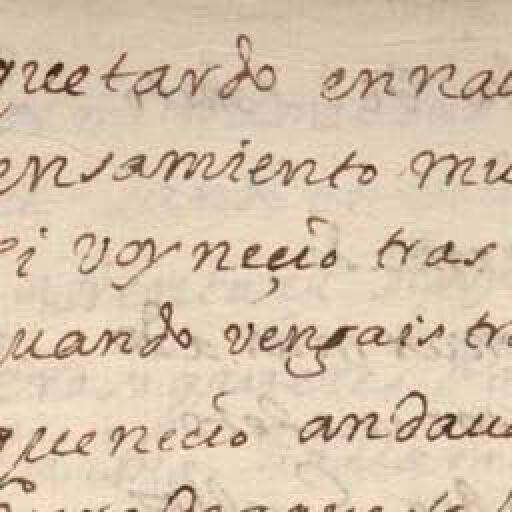 que tardo en nac
ensamiento mu
si voy neçio tras
quando vengais tr
que necio andau